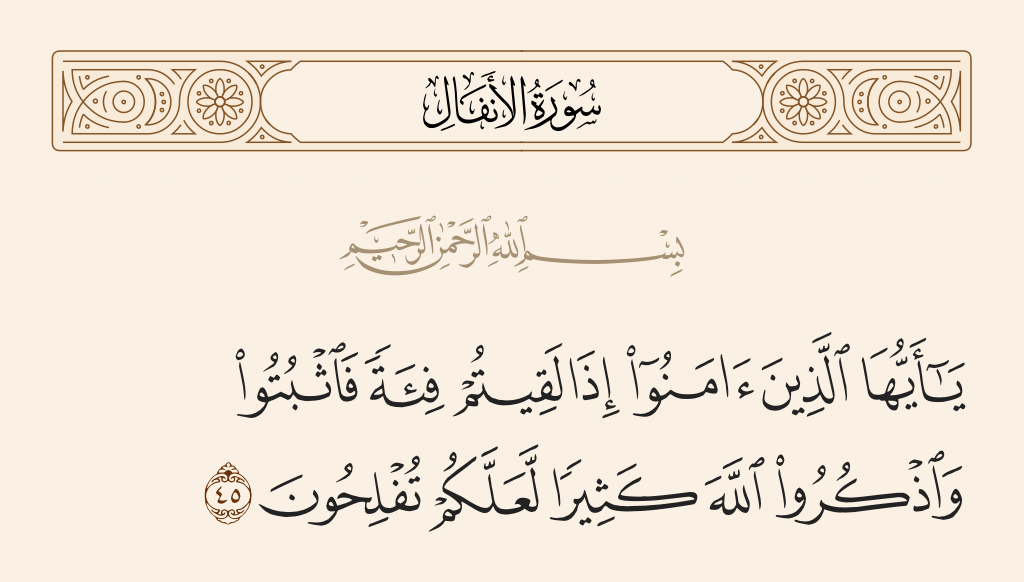 سُورَةُ الأَنفَالِ
بِسْمِ ٱللَّهِ ٱلرَّحْمَٰنِ ٱلرَّحِيمِ
يَـٰٓأَيُّهَا ٱلَّذِينَ ءَامَنُوٓا۟ إِذَا لَقِيتُمْ فِئَةً فَٱثْبُتُوا۟
وَٱذْكُرُوا۟ ٱللَّهَ كَثِيرًا لَّعَلَّكُمْ تُفْلِحُونَ ٤٥